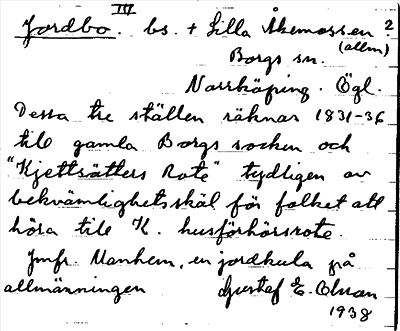 III
Jordbo. bs. + Lilla Åkemossen 2
(allm)
Borgs sn.
Norrköping. Ögl.
Dessa tre ställen räknas 1831-36
till gamla Borgs socken och
"Kjettsätters Rote" tydligen av
bekvämlighetsskäl för folket att
höra till K. husförhörsrote.
Jmfr. Manhem, en jordkula på
allmänningen Gustaf E. Olsson
1938